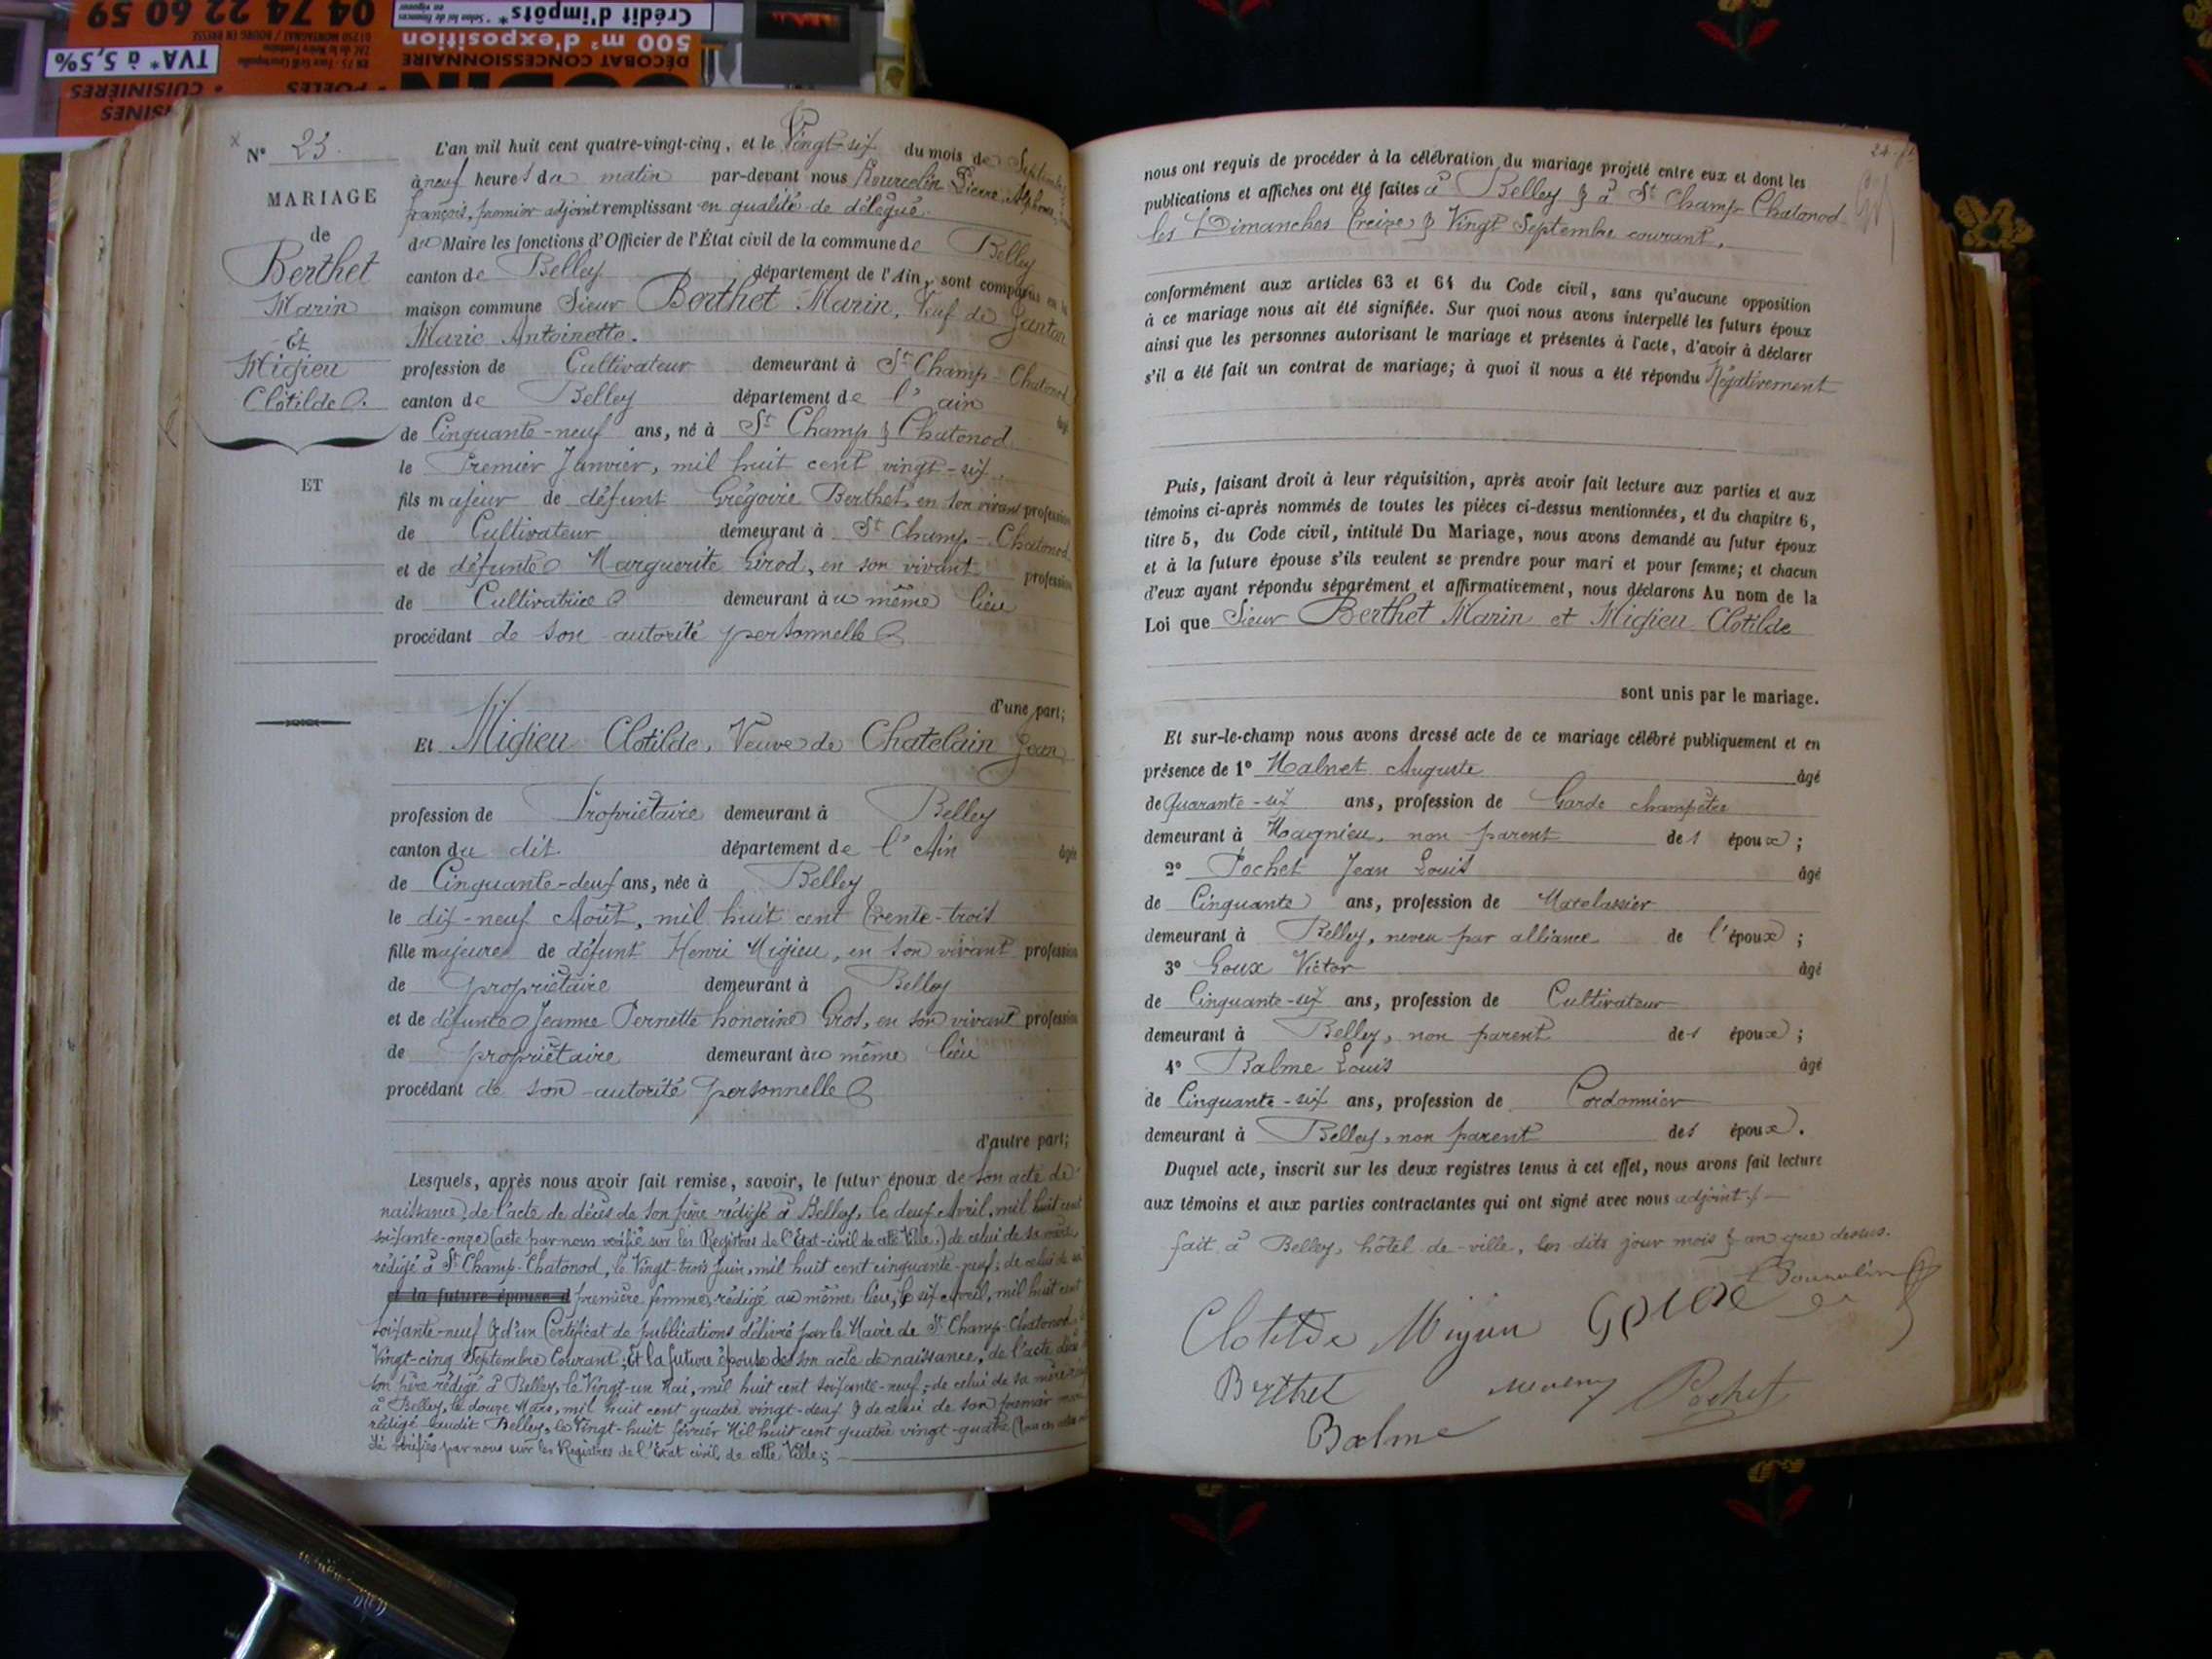 04 74 22 60 59
Crédit d'impôts*
500 m² d'exposition
DÉCOBAT CONCESSIONNAIRE
01250 MONTAGNAT / BOURG EN BRESSE
TVA* à 5,5%
CUISINIÈRES
POÊLES
N° 23.
MARIAGE
de
Berthet
Marin
Et
Migieu
Clotilde
ET
L'an mil huit cent quatre-vingt-cinq, et le Vingt-six du mois de Septembre
à neuf heures du matin par-devant nous Bourcelin Pierre Alphonse
françois, premier adjoint remplissant en qualité de délégué
du Maire les fonctions d'Officier de l'État civil de la commune de Belley
canton de Belley département de l'Ain, sont comparus en la
maison commune Sieur Berthet Marin, Veuf de Janton
Marie Antoinette.
profession de Cultivateur demeurant à St Champ-Chatonod
canton de Belley département de l'ain âgé
de Cinquante-neuf ans, né à St Champ & Chatonod
le Premier Janvier, mil huit cent vingt-six
fils majeur de défunt Grégoire Berthet, en son vivant profession
de Cultivateur demeurant à St Champ-Chatonod
et de défunte Marguerite Girod, en son vivant profession
de Cultivatrice demeurant au même lieu
procédant de son autorité personnelle
d'une part;
Et Migieu Clotilde, Veuve de Chatelain Jean
profession de Propriétaire demeurant à Belley
canton du dit. département de l'Ain âgée
de Cinquante-deux ans, née à Belley
le dix-neuf Août, mil huit cent trente-trois
fille majeure de défunt Henri Migieu, en son vivant profession
de propriétaire demeurant à Belley
et de défunte Jeanne Pernette honorine Gros, en son vivant profession
de propriétaire demeurant au même lieu
procédant de son autorité personnelle
d'autre part;
Lesquels, après nous avoir fait remise, savoir, le futur époux de son acte de
naissance, de l'acte de décès de son père rédigé à Belley, le deux Avril, mil huit cent
soixante-onze (acte par nous vérifié sur les Registres de l'État-civil de cette Ville.) de celui de sa mère
rédigé à St Champ-Chatonod, le Vingt-trois Juin, mil huit cent cinquante-neuf; de celui de sa
et la future épouse d première femme, rédigé au même lieu, le six avril, mil huit cent
soixante-neuf & d'un Certificat de publications délivré par le Maire de St Champ-Chatonod le
Vingt-cinq Septembre Courant; Et la future épouse de son acte de naissance, de l'acte décès
son père rédigé à Belley, le Vingt-un Mai, mil huit cent soixante-neuf; de celui de sa mère
à Belley, le douze Mars, mil huit cent quatre vingt-deux & de celui de son premier mari
rédigé audit Belley, le Vingt-huit février Mil huit cent quatre vingt-quatre
été vérifiés par nous sur les Registres de l'État civil de cette Ville;
nous ont requis de procéder à la célébration du mariage projeté entre eux et dont les
publications et affiches ont été faites à Belley & à St Champ-Chatonod
les Dimanches treize & Vingt Septembre courant.
conformément aux articles 63 et 64 du Code civil, sans qu'aucune opposition
à ce mariage nous ait été signifiée. Sur quoi nous avons interpellé les futurs époux
ainsi que les personnes autorisant le mariage et présentes à l'acte, d'avoir à déclarer
s'il a été fait un contrat de mariage; à quoi il nous a été répondu Négativement
Puis, faisant droit à leur réquisition, après avoir fait lecture aux parties et aux
témoins ci-après nommés de toutes les pièces ci-dessus mentionnées, et du chapitre 6,
titre 5, du Code civil, intitulé Du Mariage, nous avons demandé au futur époux
et à la future épouse s'ils veulent se prendre pour mari et pour femme; et chacun
d'eux ayant répondu séparément et affirmativement, nous déclarons Au nom de la
Loi que Sieur Berthet Marin et Migieu Clotilde
sont unis par le mariage.
Et sur-le-champ nous avons dressé acte de ce mariage célébré publiquement et en
présence de 1° Malnet Auguste âgé
de Quarante-six ans, profession de Garde champêtre
demeurant à Magnieu, non parent des époux;
2° Pochet Jean Louis âgé
de Cinquante ans, profession de Matelassier
demeurant à Belley, neveu par alliance de l'époux;
3° Goux Victor âgé
de Cinquante-six ans, profession de Cultivateur
demeurant à Belley, non parent des époux;
4° Balme Louis âgé
de Cinquante-six ans, profession de Cordonnier
demeurant à Belley, non parent des époux.
Duquel acte, inscrit sur les deux registres tenus à cet effet, nous avons fait lecture
aux témoins et aux parties contractantes qui ont signé avec nous adjoint.
fait à Belley, hôtel de-ville, les dits jour mois & an que dessus.
Clotilde Migieu Goux Bourcelin
Berthet Pochet
Balme